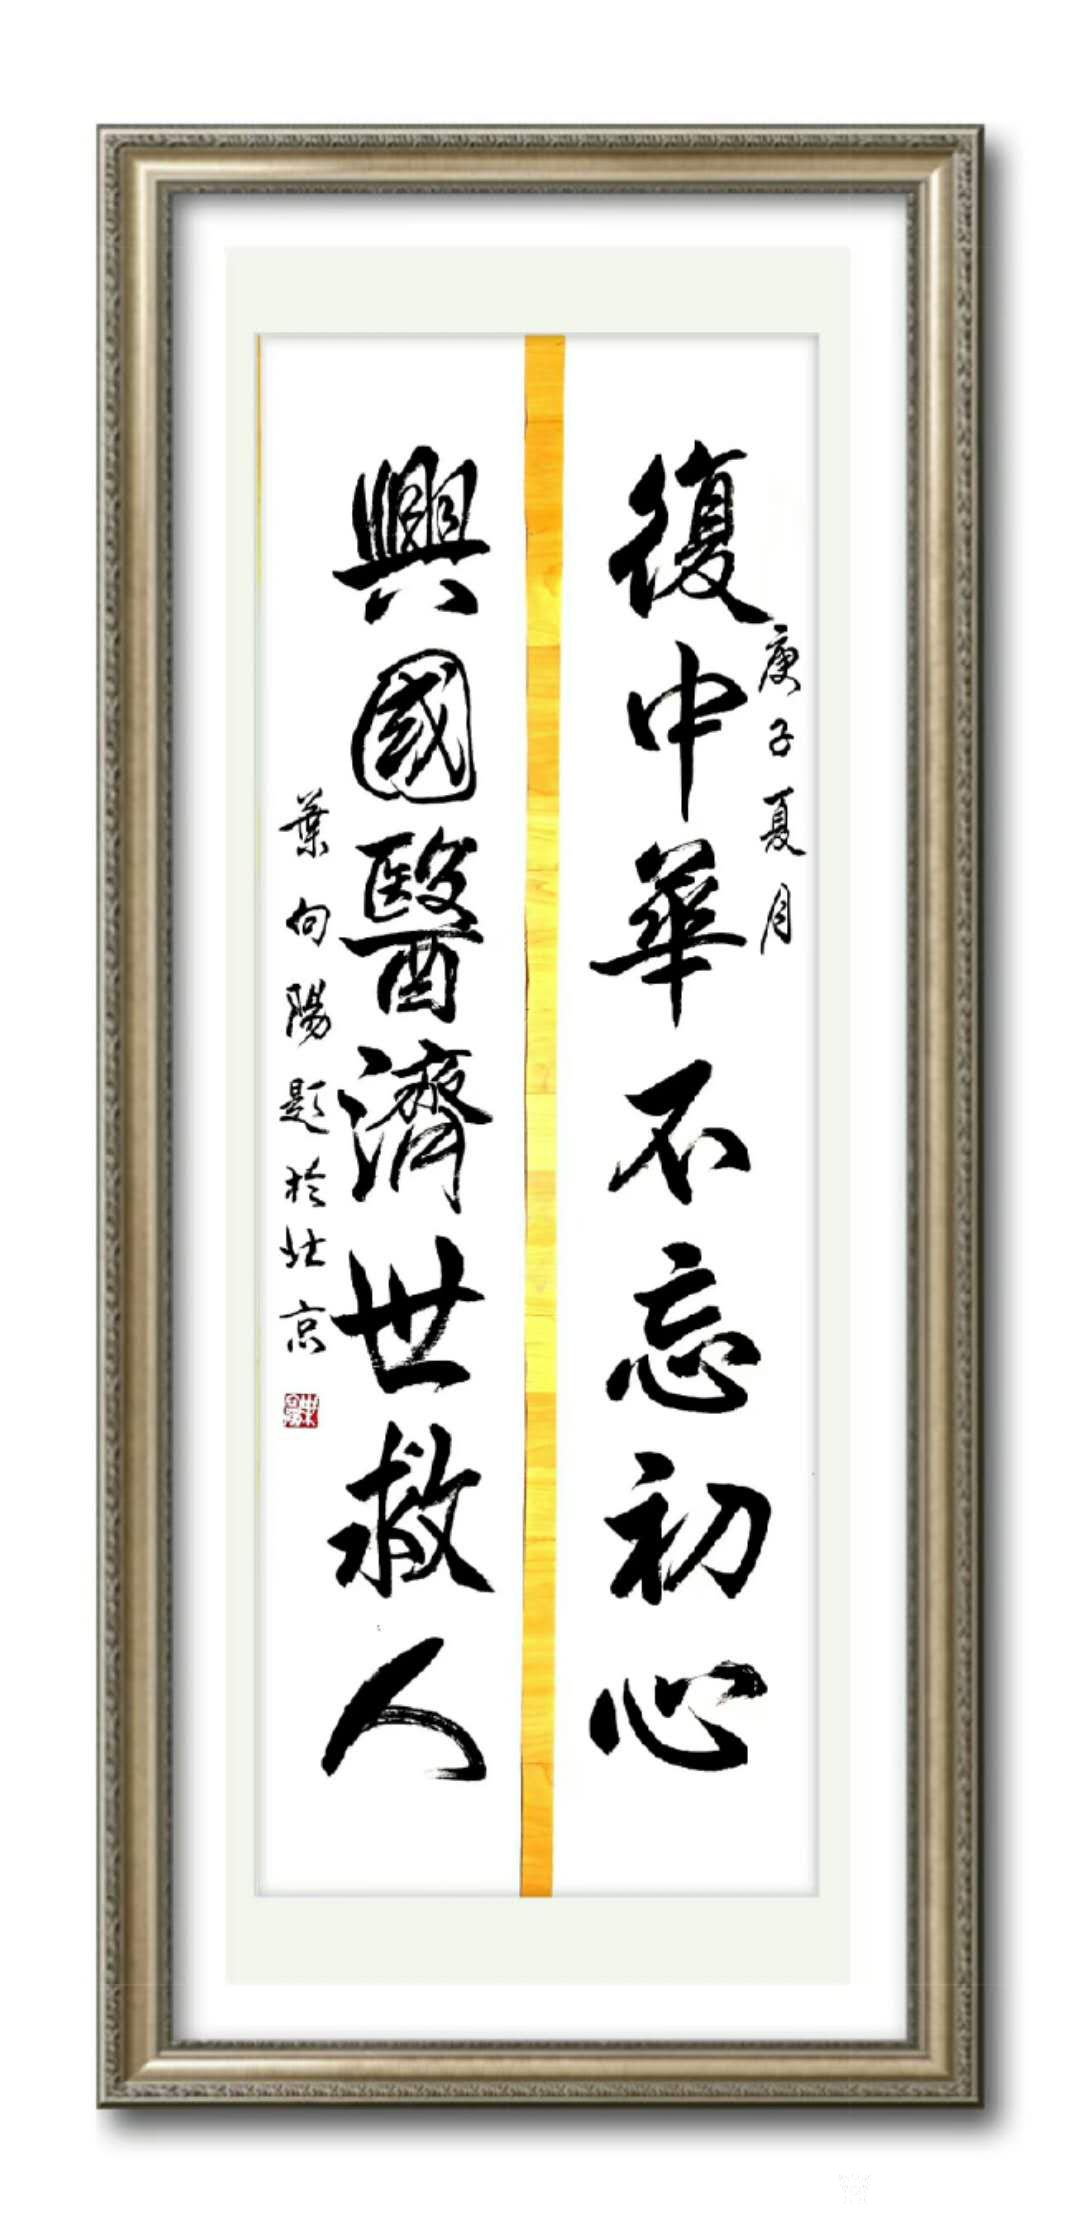 復中華不忘初心
庚子夏月
興國醫濟世救人
葉向陽題於北京